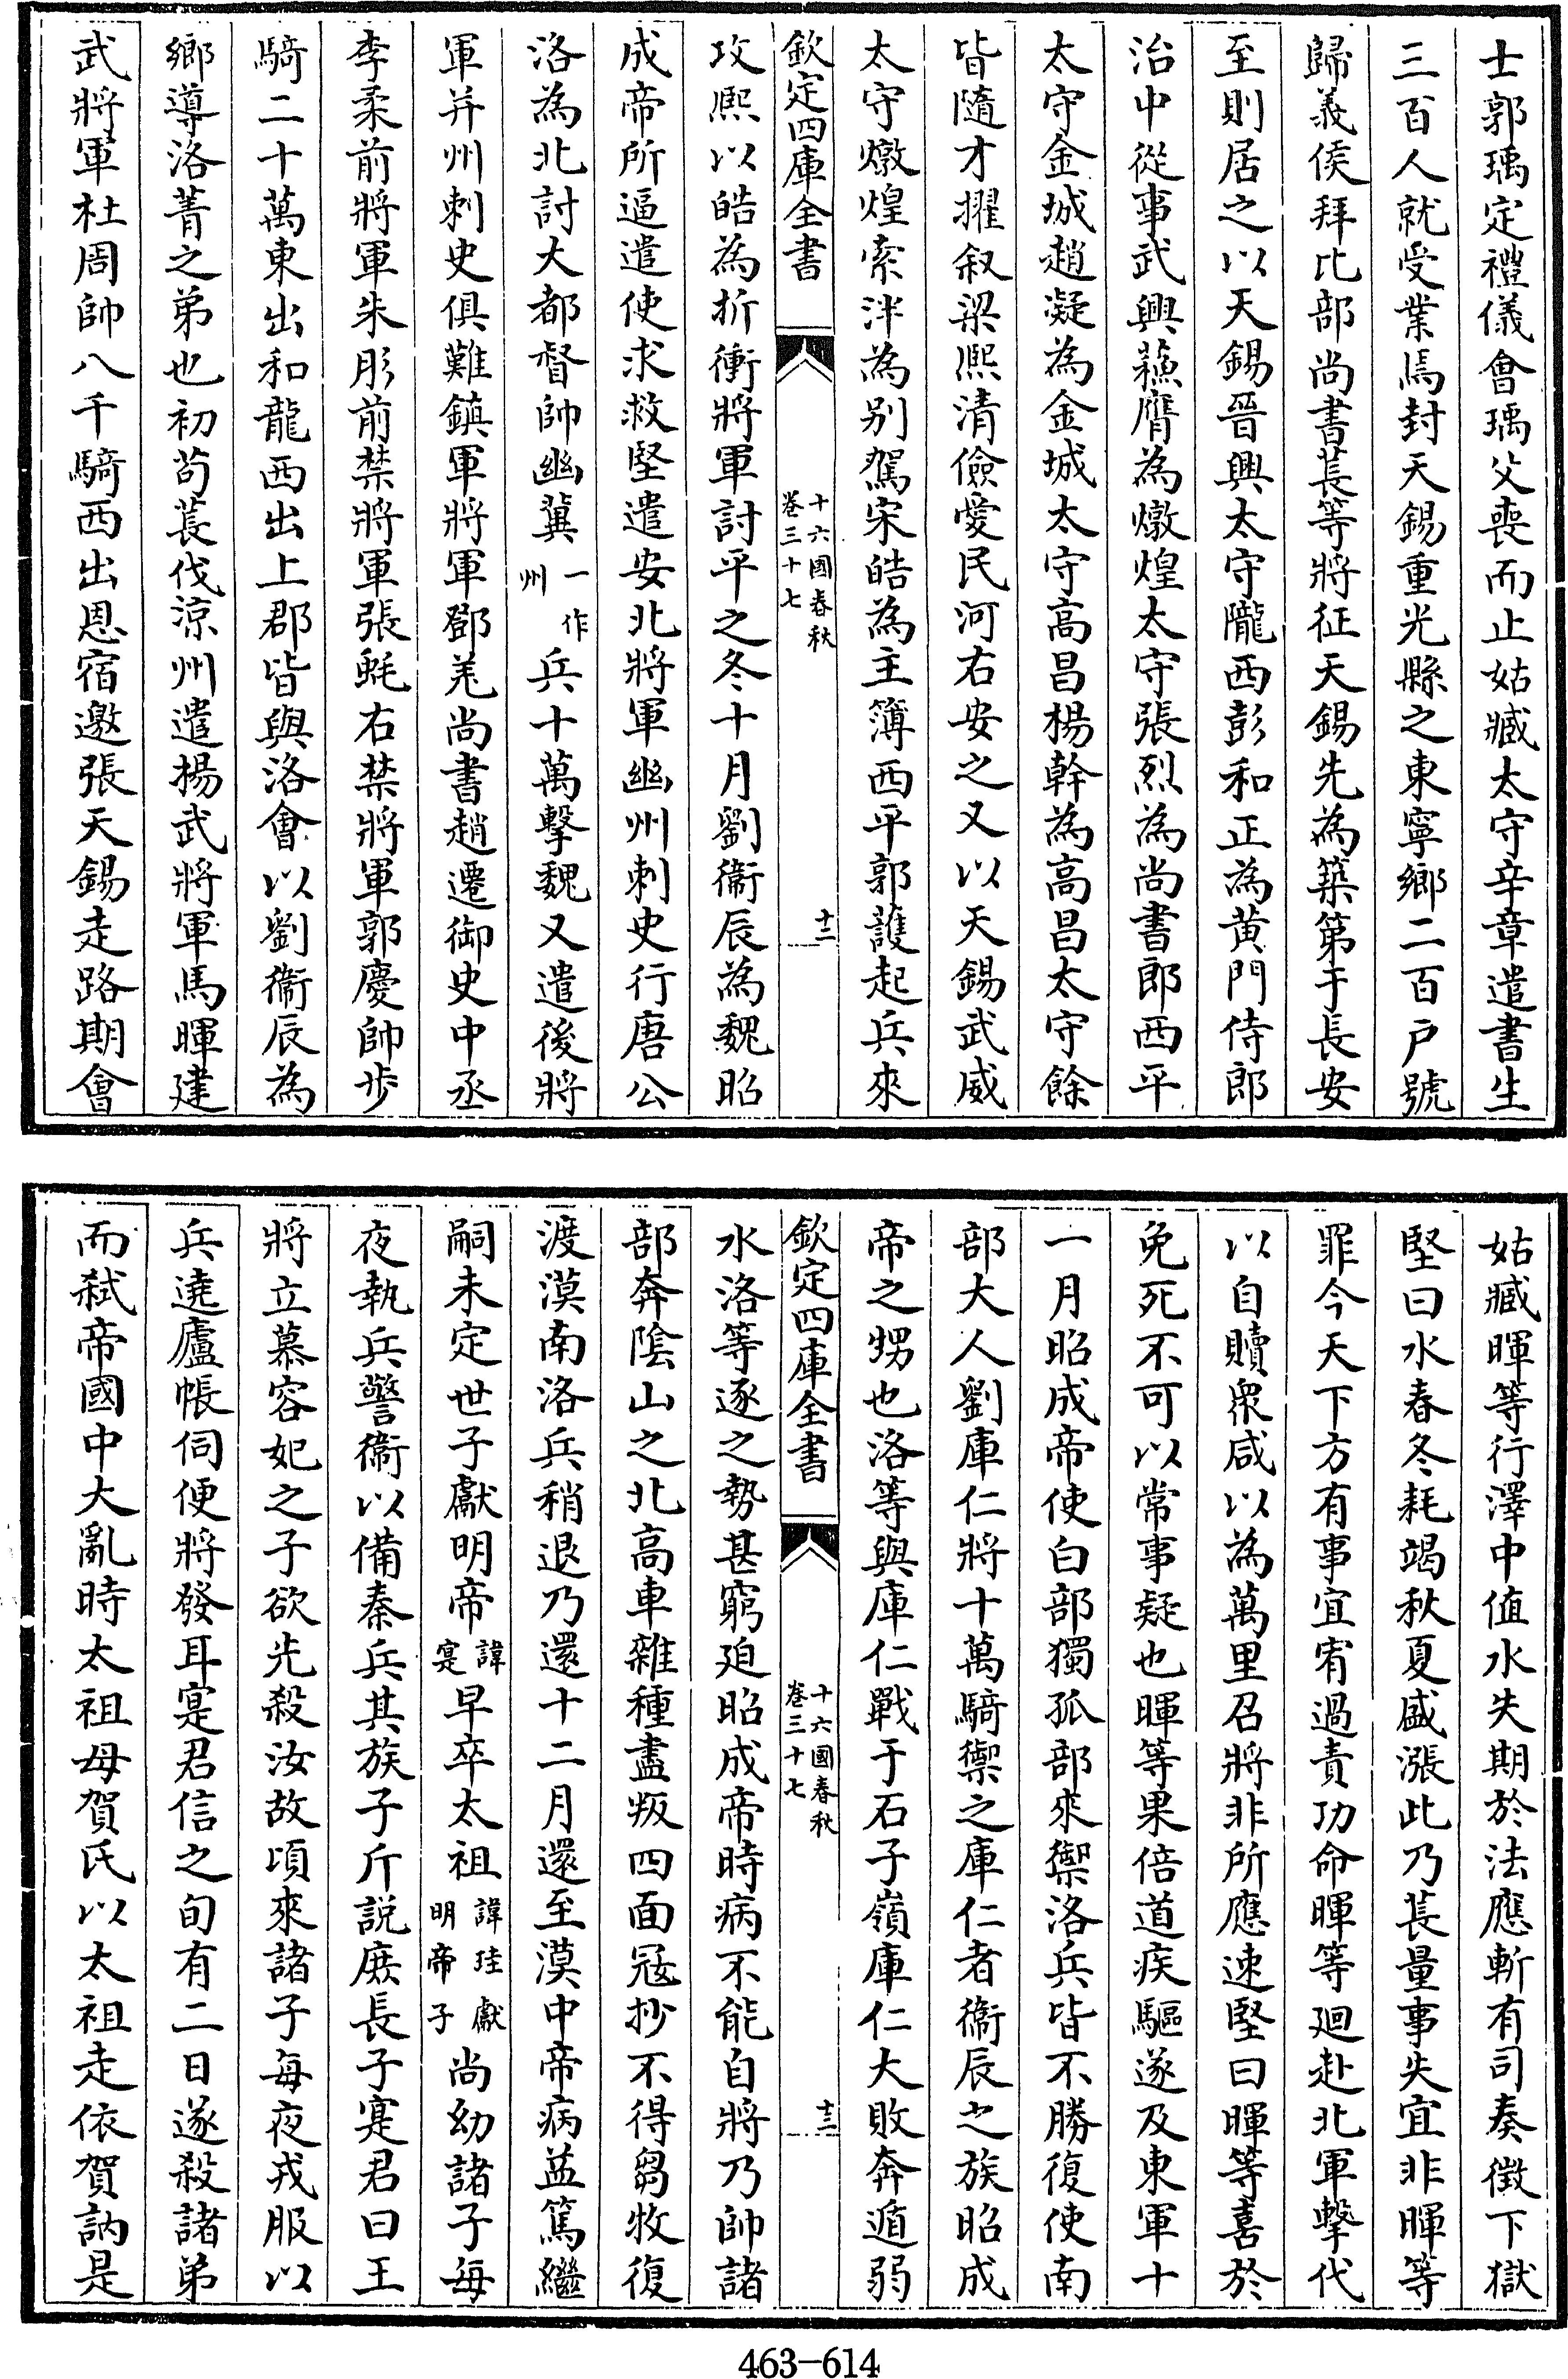 士郭瑀定禮儀會瑀父喪而止姑臧太守辛章遣書生
三百人就受業焉封天錫重光縣之東寧鄉二百戶號
歸義侯拜比部尚書萇等將征天錫先為築第于長安
至則居之以天錫晉興太守隴西彭和正為黄門侍郎
治中從事武興蘓膺為燉煌太守張烈為尚書郎西平
太守金城趙凝為金城太守高昌楊幹為高昌太守餘
皆隨才擢叙梁熙清儉愛民河右安之又以天錫武威
太守燉煌索泮為别駕宋皓為主簿西平郭護起兵來
欽定四庫全書
十六國春秋
卷三十七
十二
攻熙以皓為折衝將軍討平之冬十月劉衞辰為魏昭
成帝所逼遣使求救堅遣安北將軍幽州刺史行唐公
洛為北討大都督帥幽冀一作州兵十萬擊魏又遣後將
軍并州刺史俱難鎮軍將軍鄧羌尚書趙遷御史中丞
李柔前將軍朱肜前禁將軍張蚝右禁將軍郭慶帥步
騎二十萬東出和龍西出上郡皆與洛會以劉衞辰為
鄉導洛菁之弟也初茍萇伐涼州遣揚武將軍馬暉建
武將軍杜周帥八千騎西出恩宿邀張天錫走路期會
姑臧暉等行澤中值水失期於法應斬有司奏徵下獄
堅曰水春冬耗竭秋夏盛漲此乃萇量事失宜非暉等
罪今天下方有事宜宥過責功命暉等廻赴北軍擊代
以自贖衆咸以為萬里召將非所應速堅曰暉等喜於
免死不可以常事疑也暉等果倍道疾驅遂及東軍十
一月昭成帝使白部獨孤部來禦洛兵皆不勝復使南
部大人劉庫仁將十萬騎禦之庫仁者衞辰之族昭成
帝之甥也洛等與庫仁戰于石子嶺庫仁大敗奔遁弱
欽定四庫全書
十六國春秋
卷三十七
十三
水洛等逐之勢甚窮廹昭成帝時病不能自將乃帥諸
部奔陰山之北高車雜種盡叛四面冦抄不得芻牧復
渡漠南洛兵稍退乃還十二月還至漠中帝病益篤繼
嗣未定世子獻明帝諱寔早卒太祖諱珪獻明帝子尚幼諸子每
夜執兵警衞以備秦兵其族子斤説庶長子寔君曰王
將立慕容妃之子欲先殺汝故頃來諸子每夜戎服以
兵遶廬帳伺便將發耳寔君信之旬有二日遂殺諸弟
而弑帝國中大亂時太祖母賀氏以太祖走依賀訥是
463-614